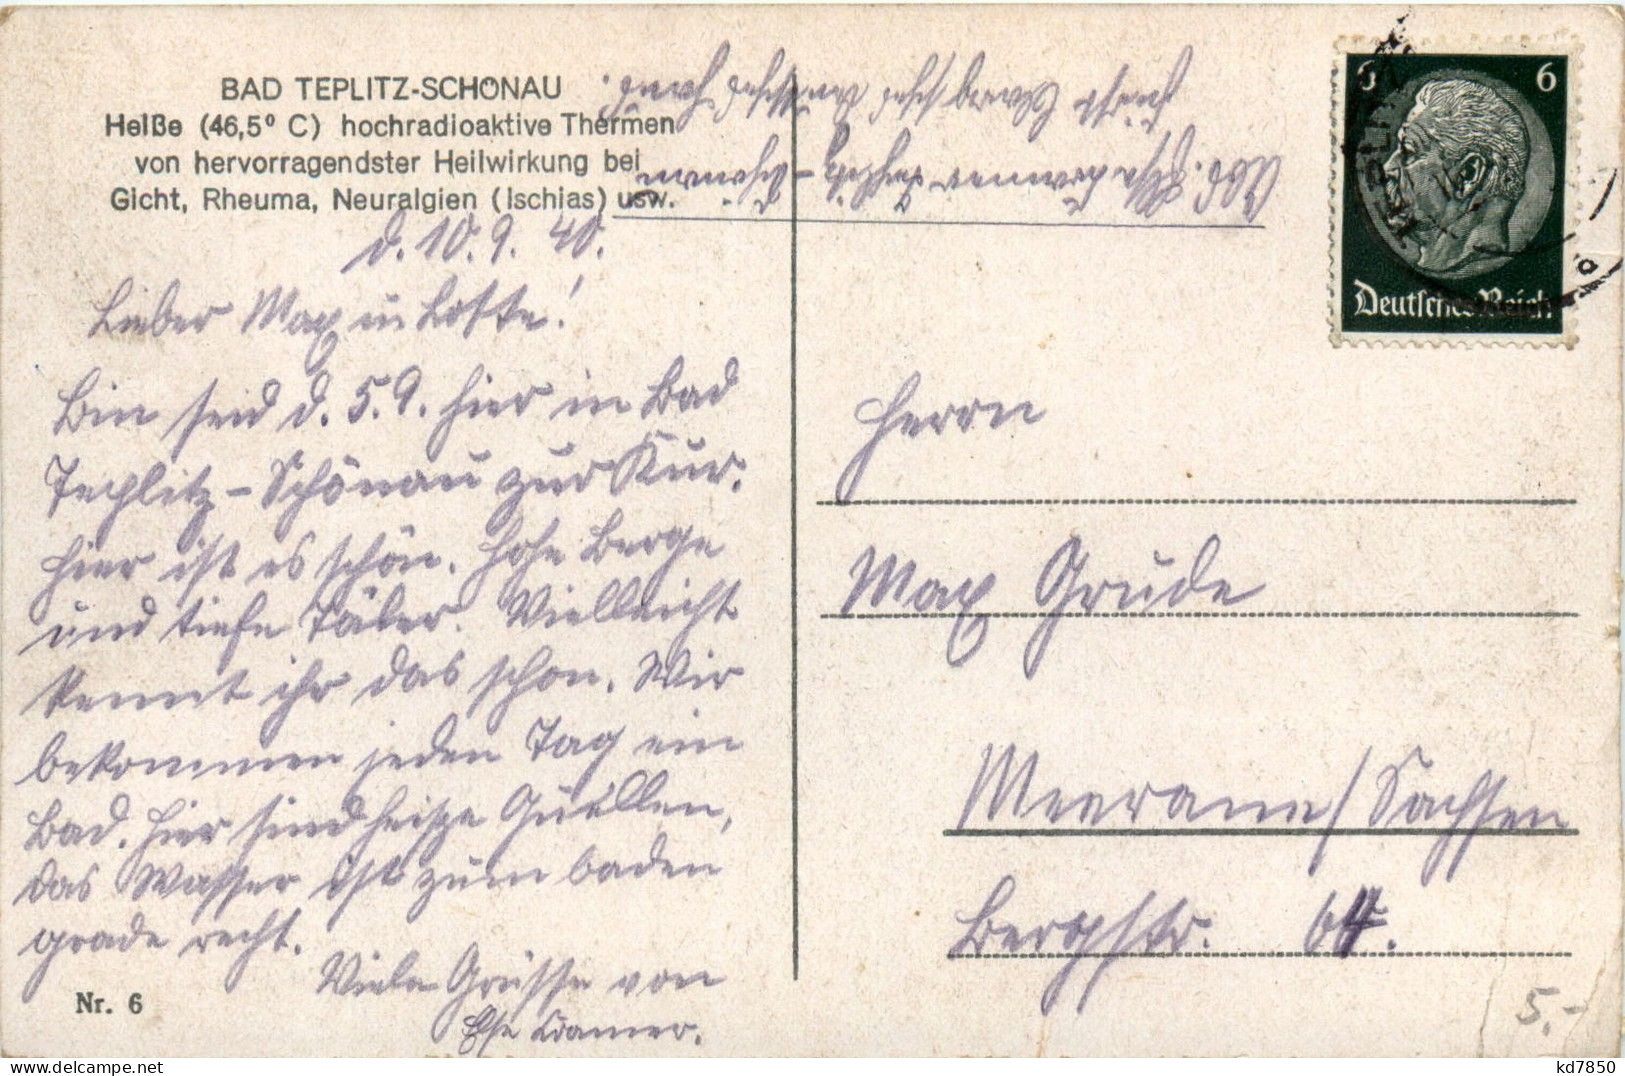 BAD TEPLITZ-SCHÖNAU
Heiße (46,5° C) hochradioaktive Thermen
von hervorragendster Heilwirkung bei
Gicht, Rheuma, Neuralgien (Ischias) usw.
d. 10. 9. 40.
Lieber Max u Lotte!
Bin seid d. 5.9. hier in Bad
Teplitz-Schönau zur Kur.
Hier ist es schön. Hohe Berge
und tiefe Täler. Vielleicht
kennt ihr das schon. Wir
bekommen jeden Tag ein
Bad. Hier sind heiße Quellen,
das Wasser ist zum baden
grade recht.
Viele Grüsse von
Else Cramer.
Nr. 6
Abs. Else Cramer Teplitz-Schönau
6 6
TEPLITZ
Deutsches Reich
Herrn
Max Grude
Meerane/Sachsen
Bergstr.
5.-
kd7850